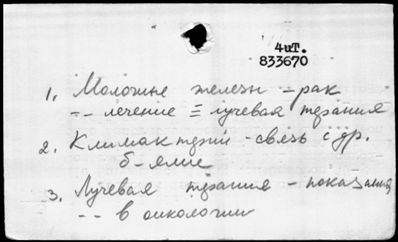 4иТ.
833670
1. Молочные железы - рак
-- лечение = лучевая терапия
2. Климактерий - связь с др.
б-ями
3. Лучевая терапия - показания
-- в онкологии